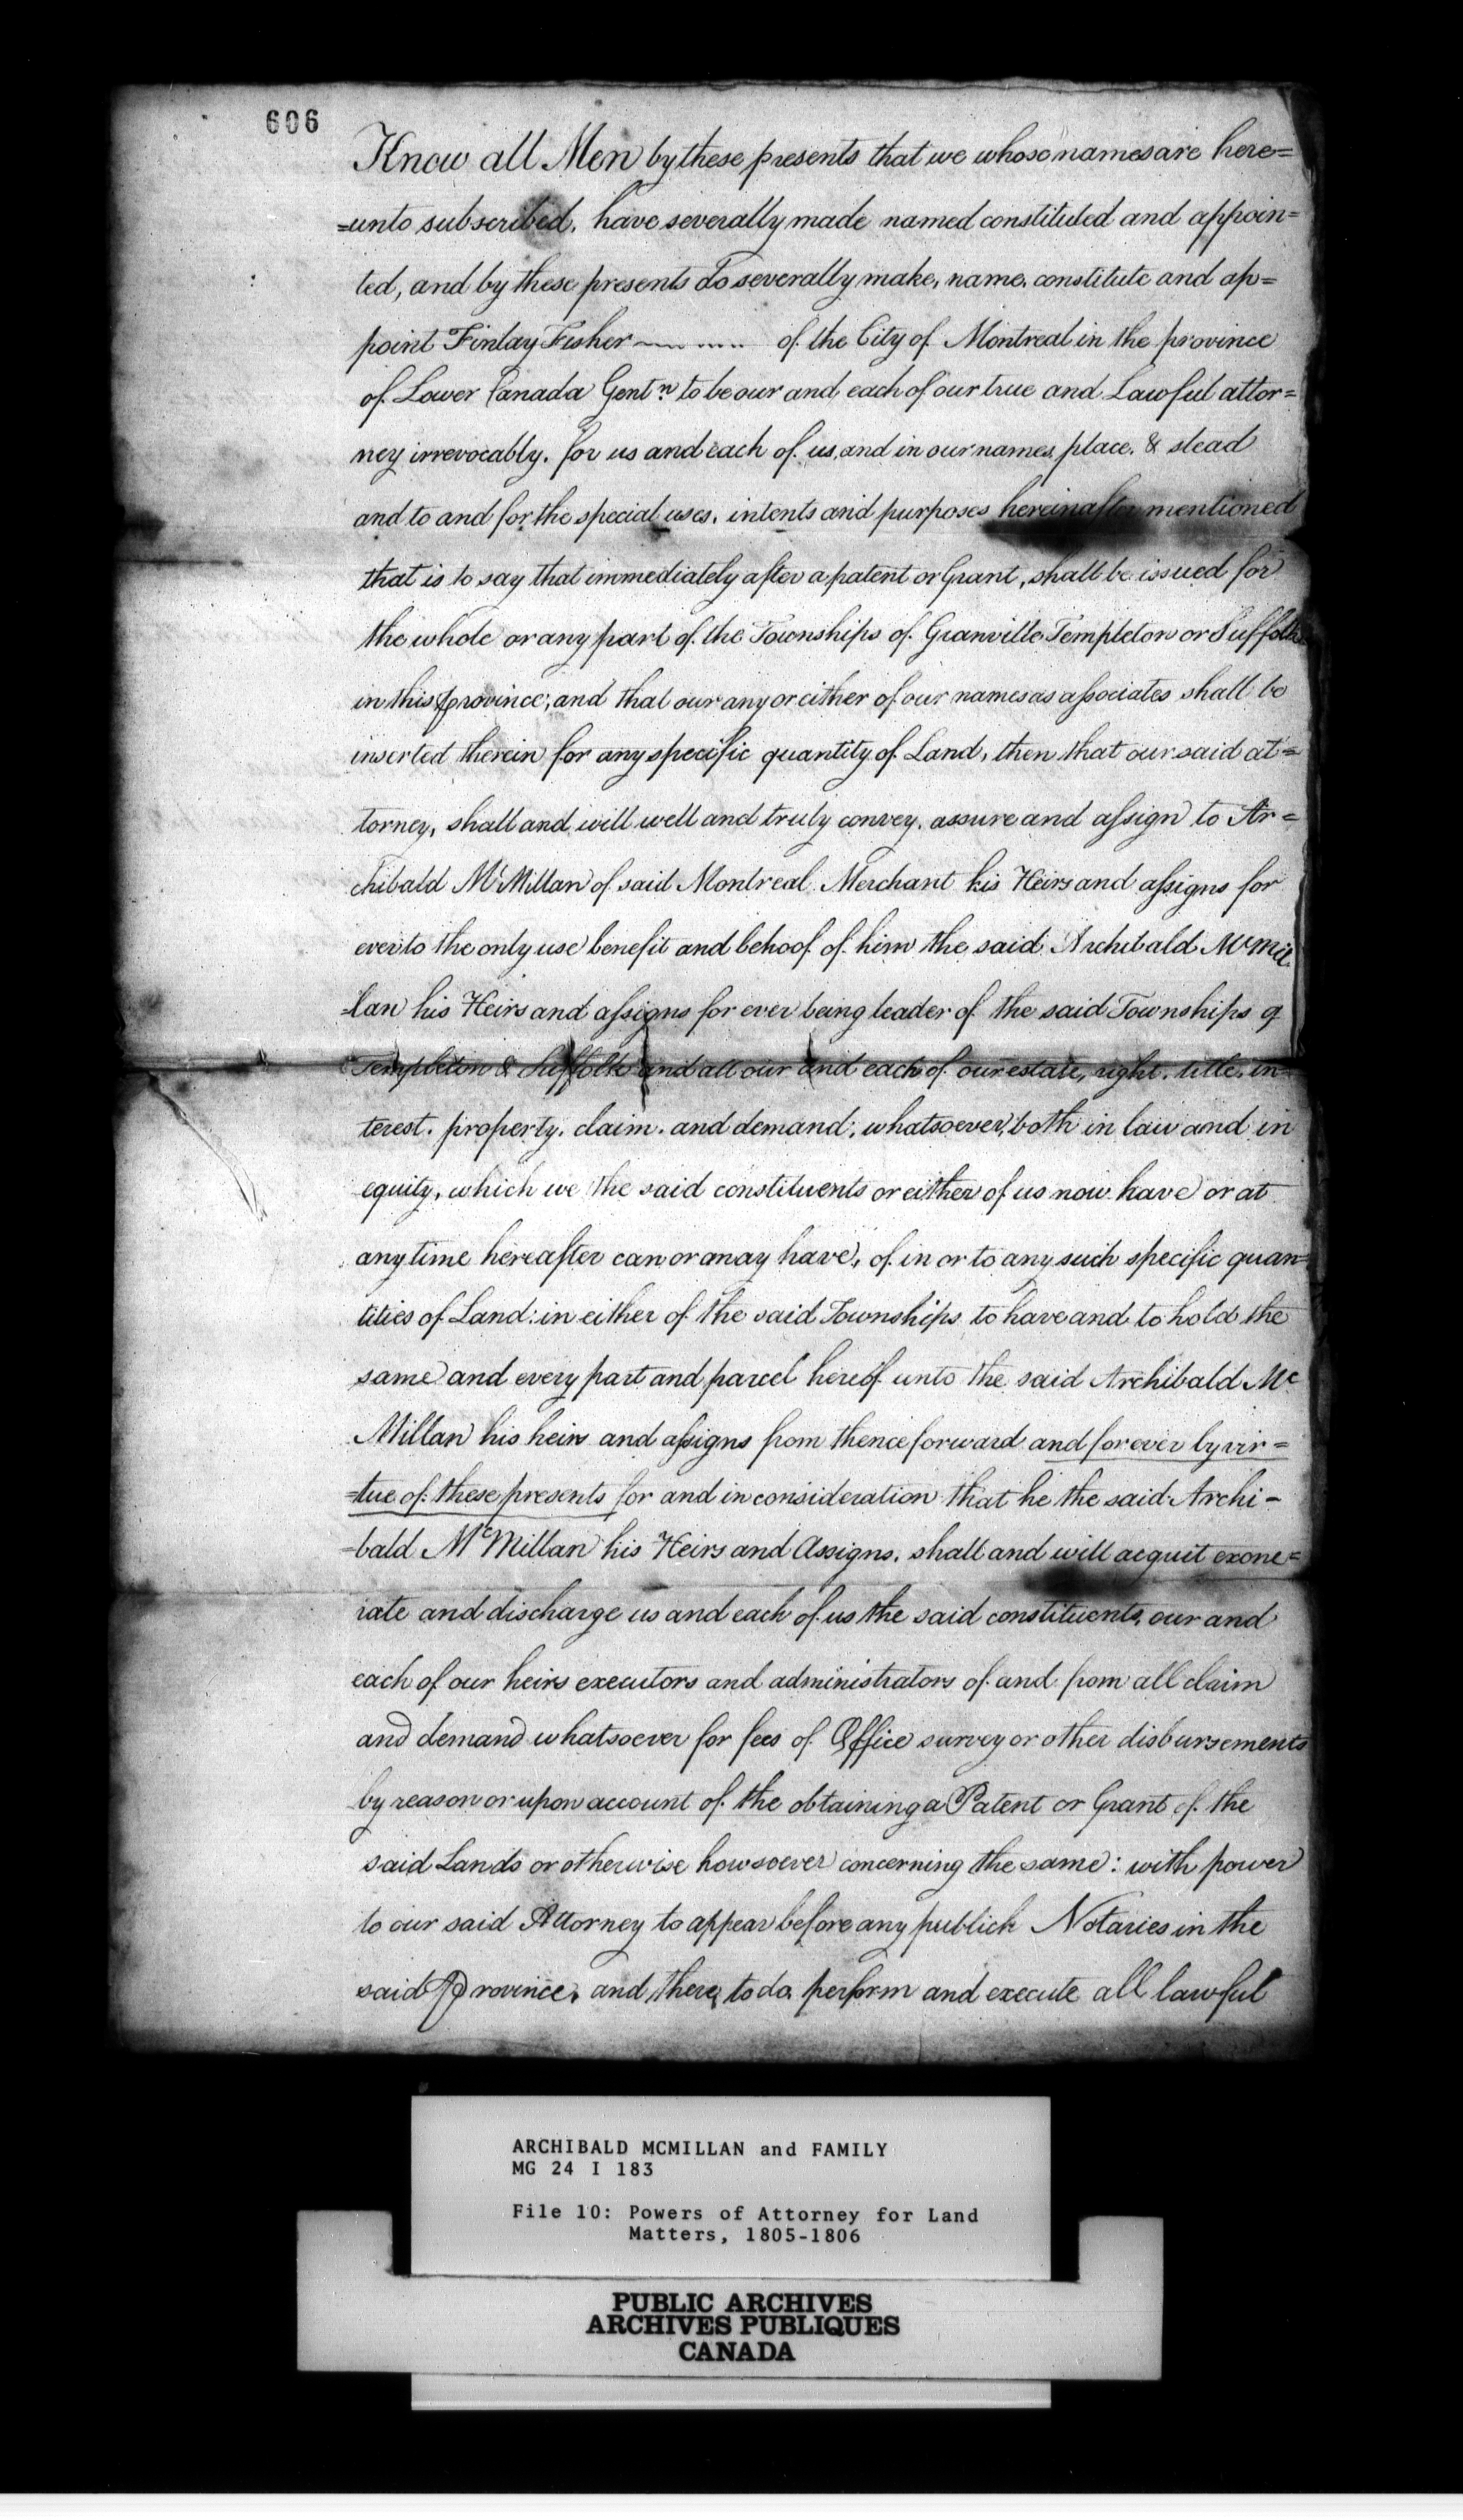 606
Know all Men by these presents that we whose names are here=
=unto subscribed, have severally made named constituted and appoin=
ted, and by these presents do severally make, name, constitute and ap=
point Finlay Fisher of the City of Montreal in the province
of Lower Canada Gentn to be our and each of our true and Lawful attor=
ney irrevocably. for us and each of us, and in our names, place. & stead
and to and for the special uses, intents and purposes hereinafter mentioned
that is to say that immediately after a patent or Grant, shall be issued for
the whole or any part of the Townships of Granville Templeton or Suffolk
in this province, and that our any or either of our names as associates shall be
inserted therein for any specific quantity of Land, then that our said at=
torney, shall and will well and truly convey, assure and assign to Ar=
chibald McMillan of said Montreal Merchant his Heirs and assigns for
ever to the only use benefit and behoof of him the said Archibald McMil
=lan his Heirs and assigns for ever being leader of the said Townships of
Templeton & Suffolk and all our and each of our estate, right, title, in=
terest. property. claim. and demand, whatsoever, both in law and in
equity, which we the said constituents or either of us now have or at
any time hereafter can or may have, of in or to any such specific quan=
tities of Land: in either of the said Townships to have and to hold the
same and every part and parcel hereof unto the said Archibald Mc
Millan his heirs and assigns from thence forward and for ever by vir=
=tue of these presents for and in consideration that he the said Archi-
=bald McMillan his Heirs and Assigns, shall and will acquit exone=
rate and discharge us and each of us the said constituents, our and
each of our heirs executors and administrators of and from all claim
and demand whatsoever for fees of Office survey or other disbursements
by reason or upon account of the obtaining a Patent or Grant of the
said Lands or otherwise howsoever concerning the same: with power
to our said Attorney to appear before any publick Notaries in the
said Province, and there, to do, perform and execute all lawful
ARCHIBALD MCMILLAN and FAMILY
MG 24 I 183
File 10: Powers of Attorney for Land
Matters, 1805-1806
PUBLIC ARCHIVES
ARCHIVES PUBLIQUES
CANADA